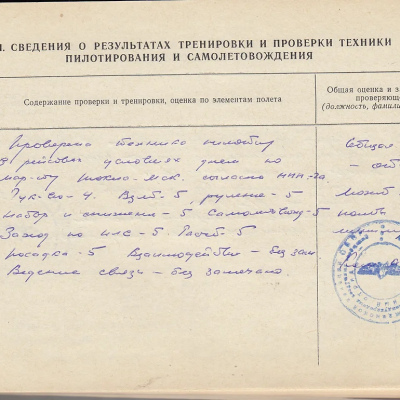 I. СВЕДЕНИЯ О РЕЗУЛЬТАТАХ ТРЕНИРОВКИ И ПРОВЕРКИ ТЕХНИКИ
ПИЛОТИРОВАНИЯ И САМОЛЕТОВОЖДЕНИЯ
Содержание проверки и тренировки, оценка по элементам полета
Общая оценка и з
проверяющего
(должность, фамили
Проверена техника пилотир
В рейсовых условиях днем по
мар-ту Токио-Мск. согласно
Рук-во-4. Взлет-5, руление-5
Набор и снижение-5 Самолетовожд-5
Заход по ИЛС-5. Расчет-5
посадка-5 Взаимодействие - без зам.
Ведение связи - без замечаний.
Общая
- от
Может